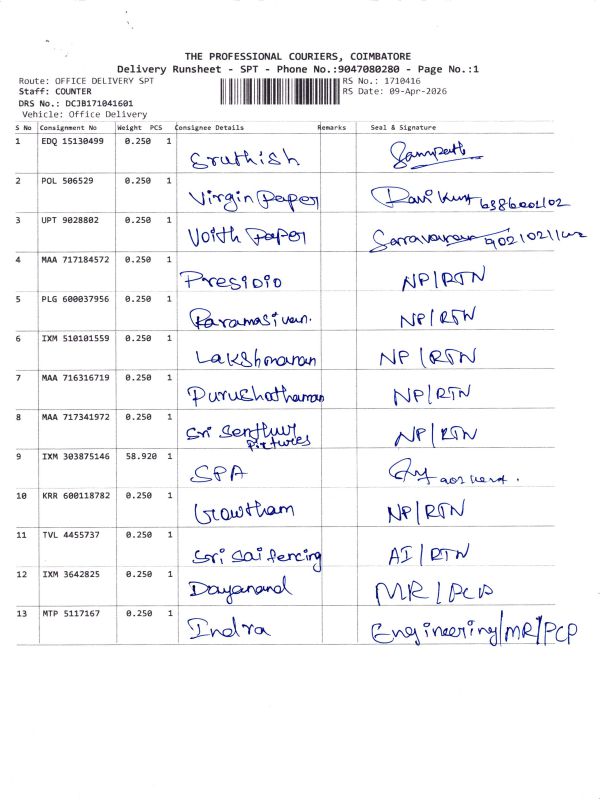 THE PROFESSIONAL COURIERS, COIMBATORE
Delivery Runsheet - SPT - Phone No.:9047080280 - Page No.:1
Route: OFFICE DELIVERY SPT RS No.: 1710416
Staff: COUNTER RS Date: 09-Apr-2026
DRS No.: DCJB171041601
Vehicle: Office Delivery
S No Consignment No Weight PCS Consignee Details Remarks Seal & Signature
1 EDQ 15130499 0.250 1 Sruthish Sampath
2 POL 506529 0.250 1 Virgin Paper Ravi Kumar
3 UPT 9028802 0.250 1 Voith Paper
4 MAA 717184572 0.250 1 Presidio NP/RTN
5 PLG 600037956 0.250 1 Paramasivan. NP/RTN
6 IXM 510101559 0.250 1 Lakshmanan NP/RTN
7 MAA 716316719 0.250 1 Purushothaman NP/RTN
8 MAA 717341972 0.250 1 Sri Senthur Pictures NP/RTN
9 IXM 303875146 58.920 1 SPA
10 KRR 600118782 0.250 1 Gowtham NP/RTN
11 TVL 4455737 0.250 1 Sri Sai fencing AI/RTN
12 IXM 3642825 0.250 1 Dayanand MR/PCP
13 MTP 5117167 0.250 1 Indra Engineering/MR/PCP